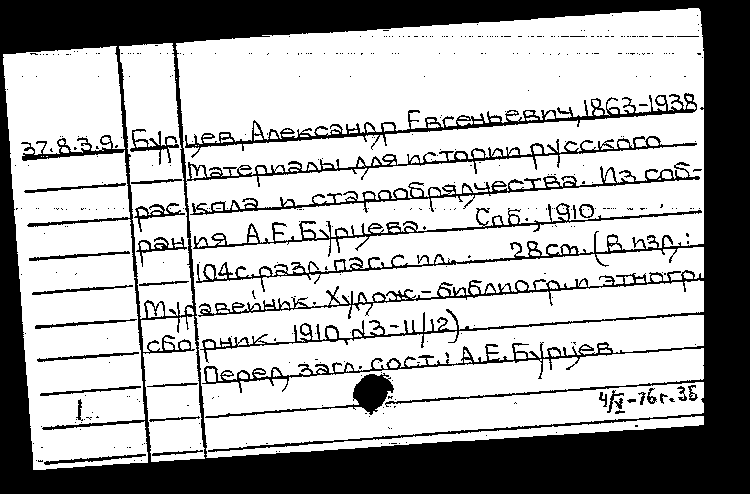 37.8.3.9. Бурцев, Александр Евгеньевич, 1863-1938.
Материалы для истории русского
раскола и старообрядчества. Из соб-
рания А.Е.Бурцева. Спб., 1910.
104с.разд.паг.с ил. 28cm. (В изд.:
Муравейник. Худож.-библиогр. и этногр.
сборник. 1910, №3-11/12).
Перед загл. сост.: А.Е.Бурцев.
1
4/V-76г.